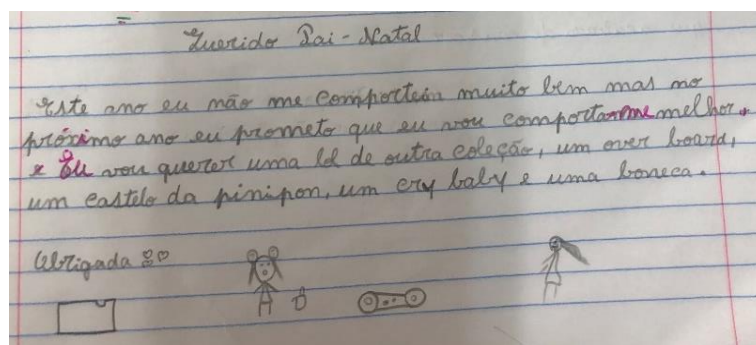 Querido Pai-Natal
Este ano eu não me comportein muito bem mas no
próximo ano eu prometo que eu vou comportar-me melhor.
x Eu vou querer uma lol de outra coleção, um over board,
um castelo da pinipon, um cry baby e uma boneca.
Obrigada